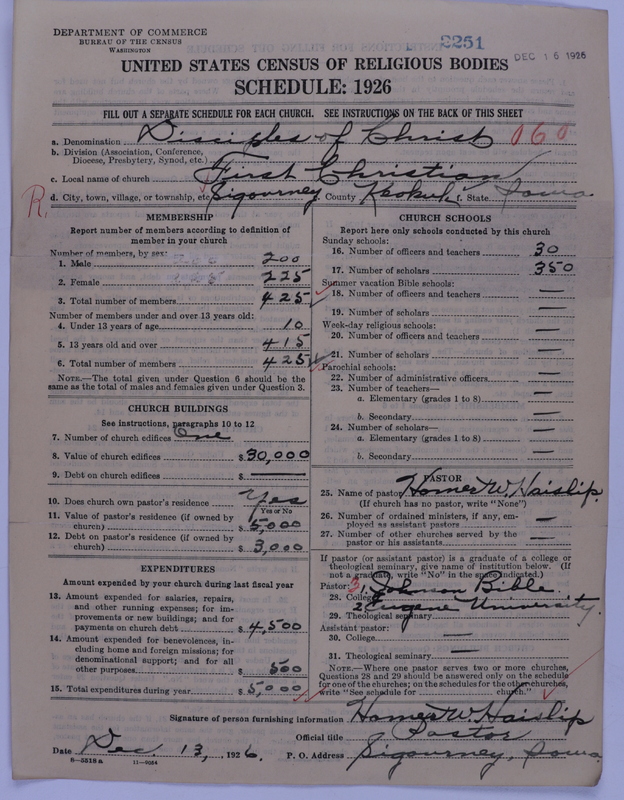 DEPARTMENT OF COMMERCE
BUREAU OF THE CENSUS
WASHINGTON
2251
DEC 16 1926
UNITED STATES CENSUS OF RELIGIOUS BODIES
SCHEDULE: 1926
FILL OUT A SEPARATE SCHEDULE FOR EACH CHURCH. SEE INSTRUCTIONS ON THE BACK OF THIS SHEET
a. Denomination Disciples of Christ 060
b. Division (Association, Conference,
Diocese, Presbytery, Synod, etc.)
c. Local name of church First Christian
R. d. City, town, village, or township, etc. Sigourney e. County Keokuk f. State Iowa
MEMBERSHIP
Report number of members according to definition of
member in your church
Number of members, by sex:
1. Male 200
2. Female 225
3. Total number of members 425
Number of members under and over 13 years old:
4. Under 13 years of age 10
5. 13 years old and over 415
6. Total number of members 425
NOTE.—The total given under Question 6 should be the
same as the total of males and females given under Question 3.
CHURCH BUILDINGS
See instructions, paragraphs 10 to 12
7. Number of church edifices One
8. Value of church edifices $30,000
9. Debt on church edifices $ —
10. Does church own pastor's residence Yes
Yes or No
11. Value of pastor's residence (if owned by
church) $ 5,000
12. Debt on pastor's residence (if owned by
church) $ 3,000
EXPENDITURES
Amount expended by your church during last fiscal year
13. Amount expended for salaries, repairs,
and other running expenses; for im-
provements or new buildings; and for
payments on church debt $ 4,500
14. Amount expended for benevolences, in-
cluding home and foreign missions; for
denominational support; and for all
other purposes $ 500
15. Total expenditures during year $ 5,000
CHURCH SCHOOLS
Report here only schools conducted by this church
Sunday schools:
16. Number of officers and teachers 30
17. Number of scholars 350
Summer vacation Bible schools:
18. Number of officers and teachers —
19. Number of scholars —
Week-day religious schools:
20. Number of officers and teachers —
21. Number of scholars —
Parochial schools:
22. Number of administrative officers —
23. Number of teachers—
a. Elementary (grades 1 to 8) —
b. Secondary —
24. Number of scholars—
a. Elementary (grades 1 to 8) —
b. Secondary —
PASTOR
25. Name of pastor Homer W. Haislip.
(If church has no pastor, write "None")
26. Number of ordained ministers, if any, em-
ployed as assistant pastors —
27. Number of other churches served by the
pastor or his assistants —
If pastor (or assistant pastor) is a graduate of a college or
theological seminary, give name of institution below. (If
not a graduate, write "No" in the space indicated.)
Pastor: 3
28. College 1. Johnson Bible.
2. Eugene University.
29. Theological seminary
Assistant pastor:
30. College —
31. Theological seminary —
NOTE.—Where one pastor serves two or more churches,
Questions 28 and 29 should be answered only on the schedule
for one of the churches; on the schedules for the other churches,
write "See schedule for church."
Signature of person furnishing information Homer W. Haislip
Official title Pastor
Date Dec 13, 1926. P. O. Address Sigourney, Iowa.
8—5518 a 11—9054